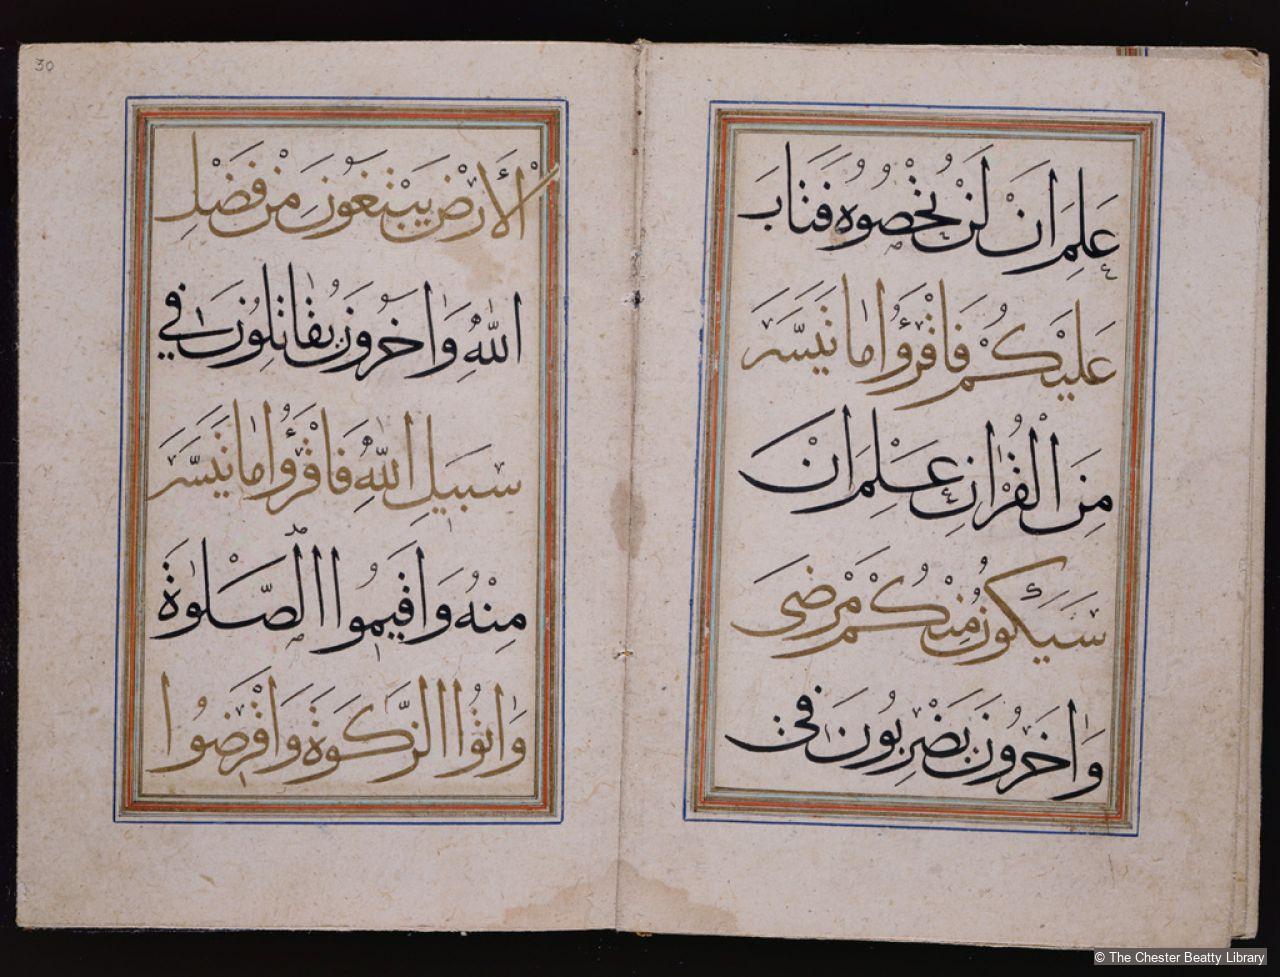 عَلِمَ اَنْ لَنْ تُحْصُوهُ فَتَابَ
عَلَيْكُمْ فَاقْرَؤُا مَا تَيَسَّرَ
مِنَ الْقُرْاٰنِ عَلِمَ اَنْ
سَيَكُونُ مِنْكُمْ مَرْضٰى
وَاٰخَرُونَ يَضْرِبُونَ فِى
الْاَرْضِ يَبْتَغُونَ مِنْ فَضْلِ
اللّٰهِ وَاٰخَرُونَ يُقَاتِلُونَ فِي
سَبِيلِ اللّٰهِ فَاقْرَؤُا مَا تَيَسَّرَ
مِنْهُ وَاَقِيمُوا الصَّلٰوةَ
وَاٰتُوا الزَّكٰوةَ وَاَقْرِضُوا
30
© The Chester Beatty Library